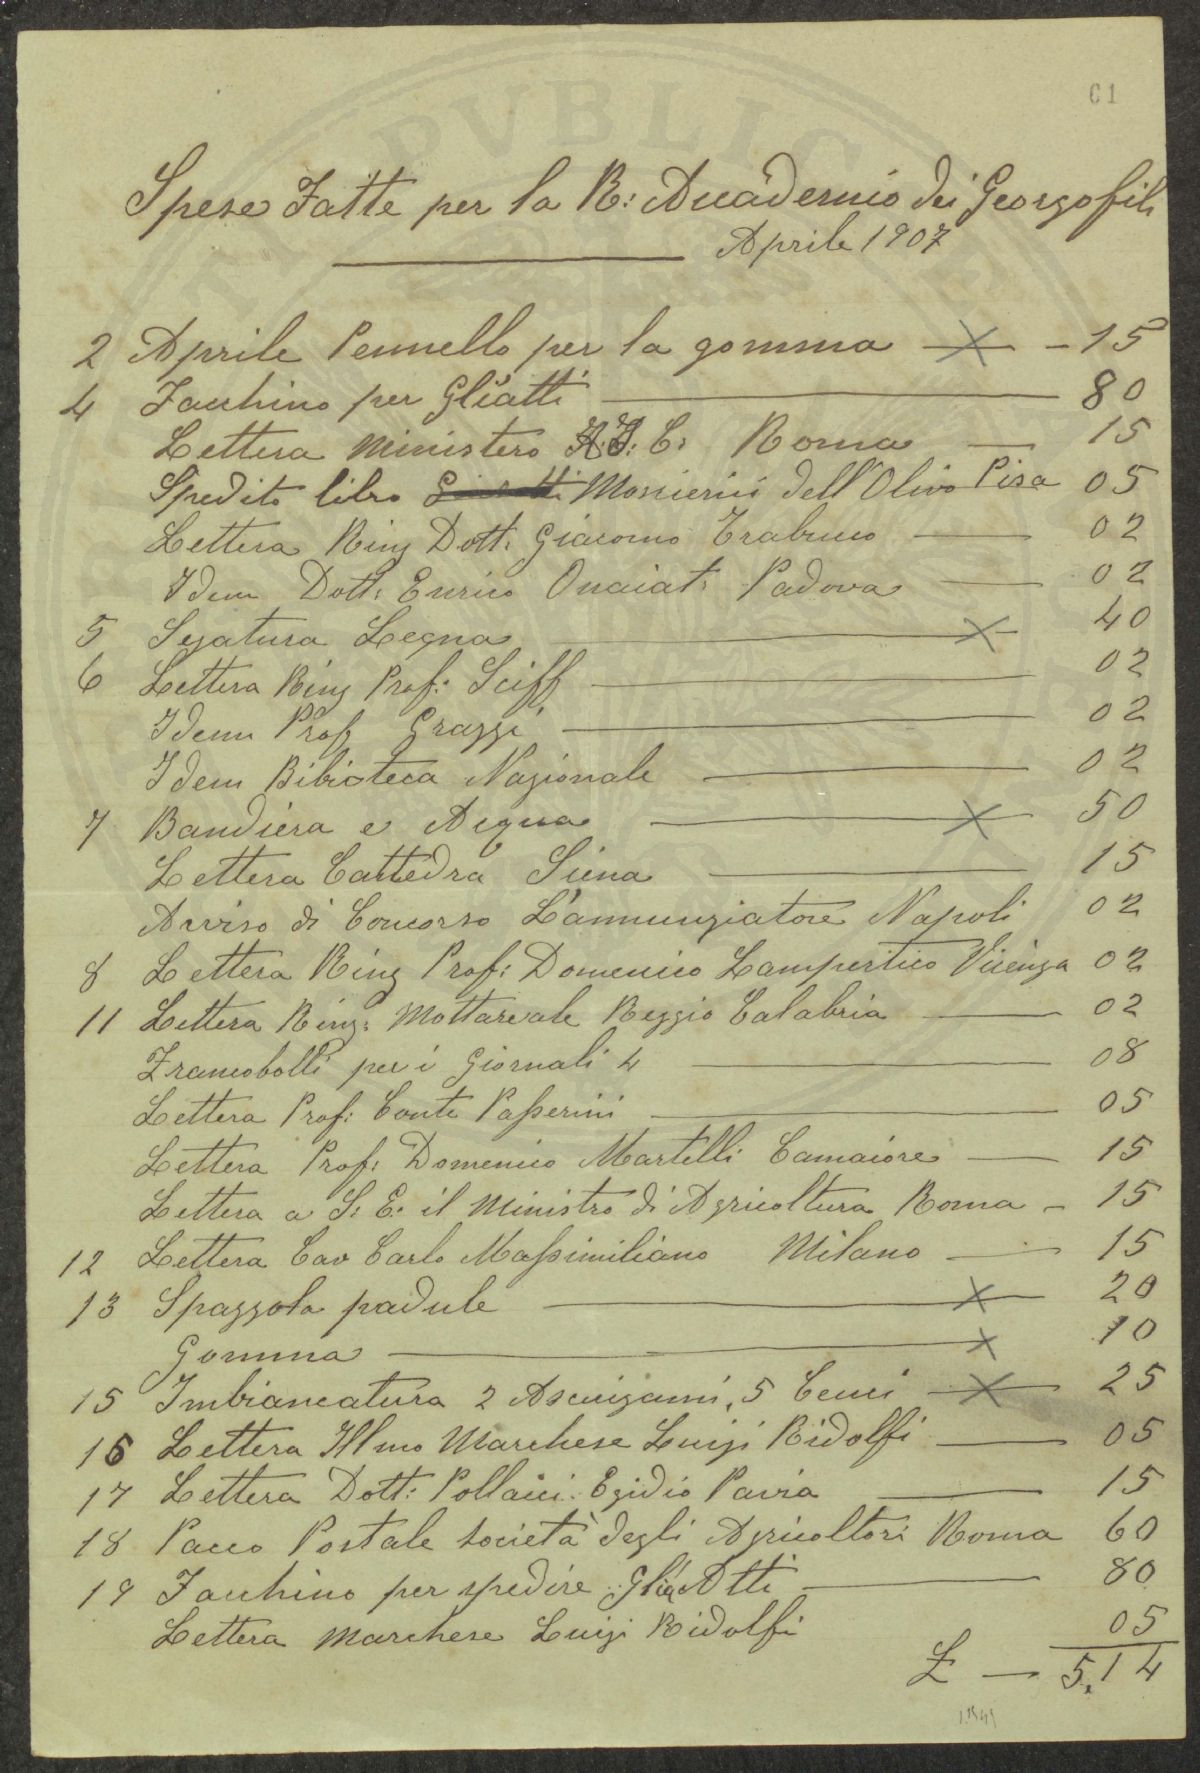 01
Spese Fatte per la R: Accademia dei Georgofili
Aprile 1907
2 Aprile Pennello per la gomma - 15
4 Facchino per Gli atti 80
Lettera Ministero A. I: C: Roma 15
Spedito libro Monierini dell'Olivo Pisa 05
Lettera Ring Dott: Giacomo Trabucco 02
Idem Dott: Enrico Padova 02
5 Segatura Legna 40
6 Lettera Ring Prof: Sciff 02
Idem Prof Grazzi 02
Idem Bibioteca Nazionale 02
7 Bandiera e Acqua 50
Lettera Cattedra Siena 15
Avviso di Concorso L'annunziatore Napoli 02
8 Lettera Ring Prof: Domenico Lampertico Vicenza 02
11 Lettera Ring: Mottareale Reggio Calabria 02
Francobolli per i Giornali 4 08
Lettera Prof: Conte Passerini 05
Lettera Prof: Domenico Martelli Camaiore 15
Lettera a S: E: il Ministro di Agricoltura Roma - 15
12 Lettera Cav Carlo Massimiliano Milano 15
13 Spazzola padule 20
Gomma 10
15 Imbiancatura 2 Asciugami, 5 Cenci 25
16 Lettera Illmo Marchese Luigi Ridolfi 05
17 Lettera Dott: Pollacci Egidio Pavia 15
18 Pacco Postale società degli Agricoltori Roma 60
19 Facchino per spedire Gli Atti 80
Lettera Marchese Luigi Ridolfi 05
£ — 5,14